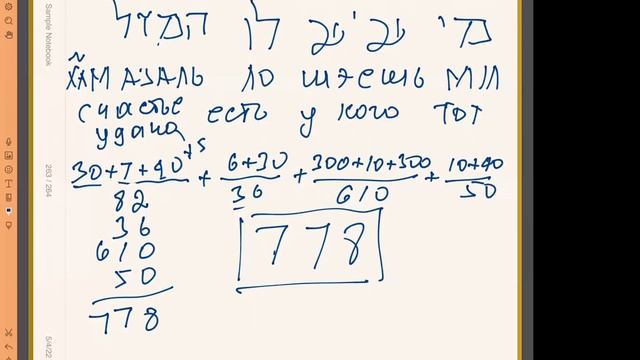 מי שיש לו המזל
ХАМ АЗАЛЬ ЛО ШЭЕШЬ МИ
счастье есть у кого тот
удача
30+7+40+5 + 6+30 + 300+10+300 + 10+40
82 36 610 50
36
610
50
778
778
Sample Notebook
263 / 264
5/4/22